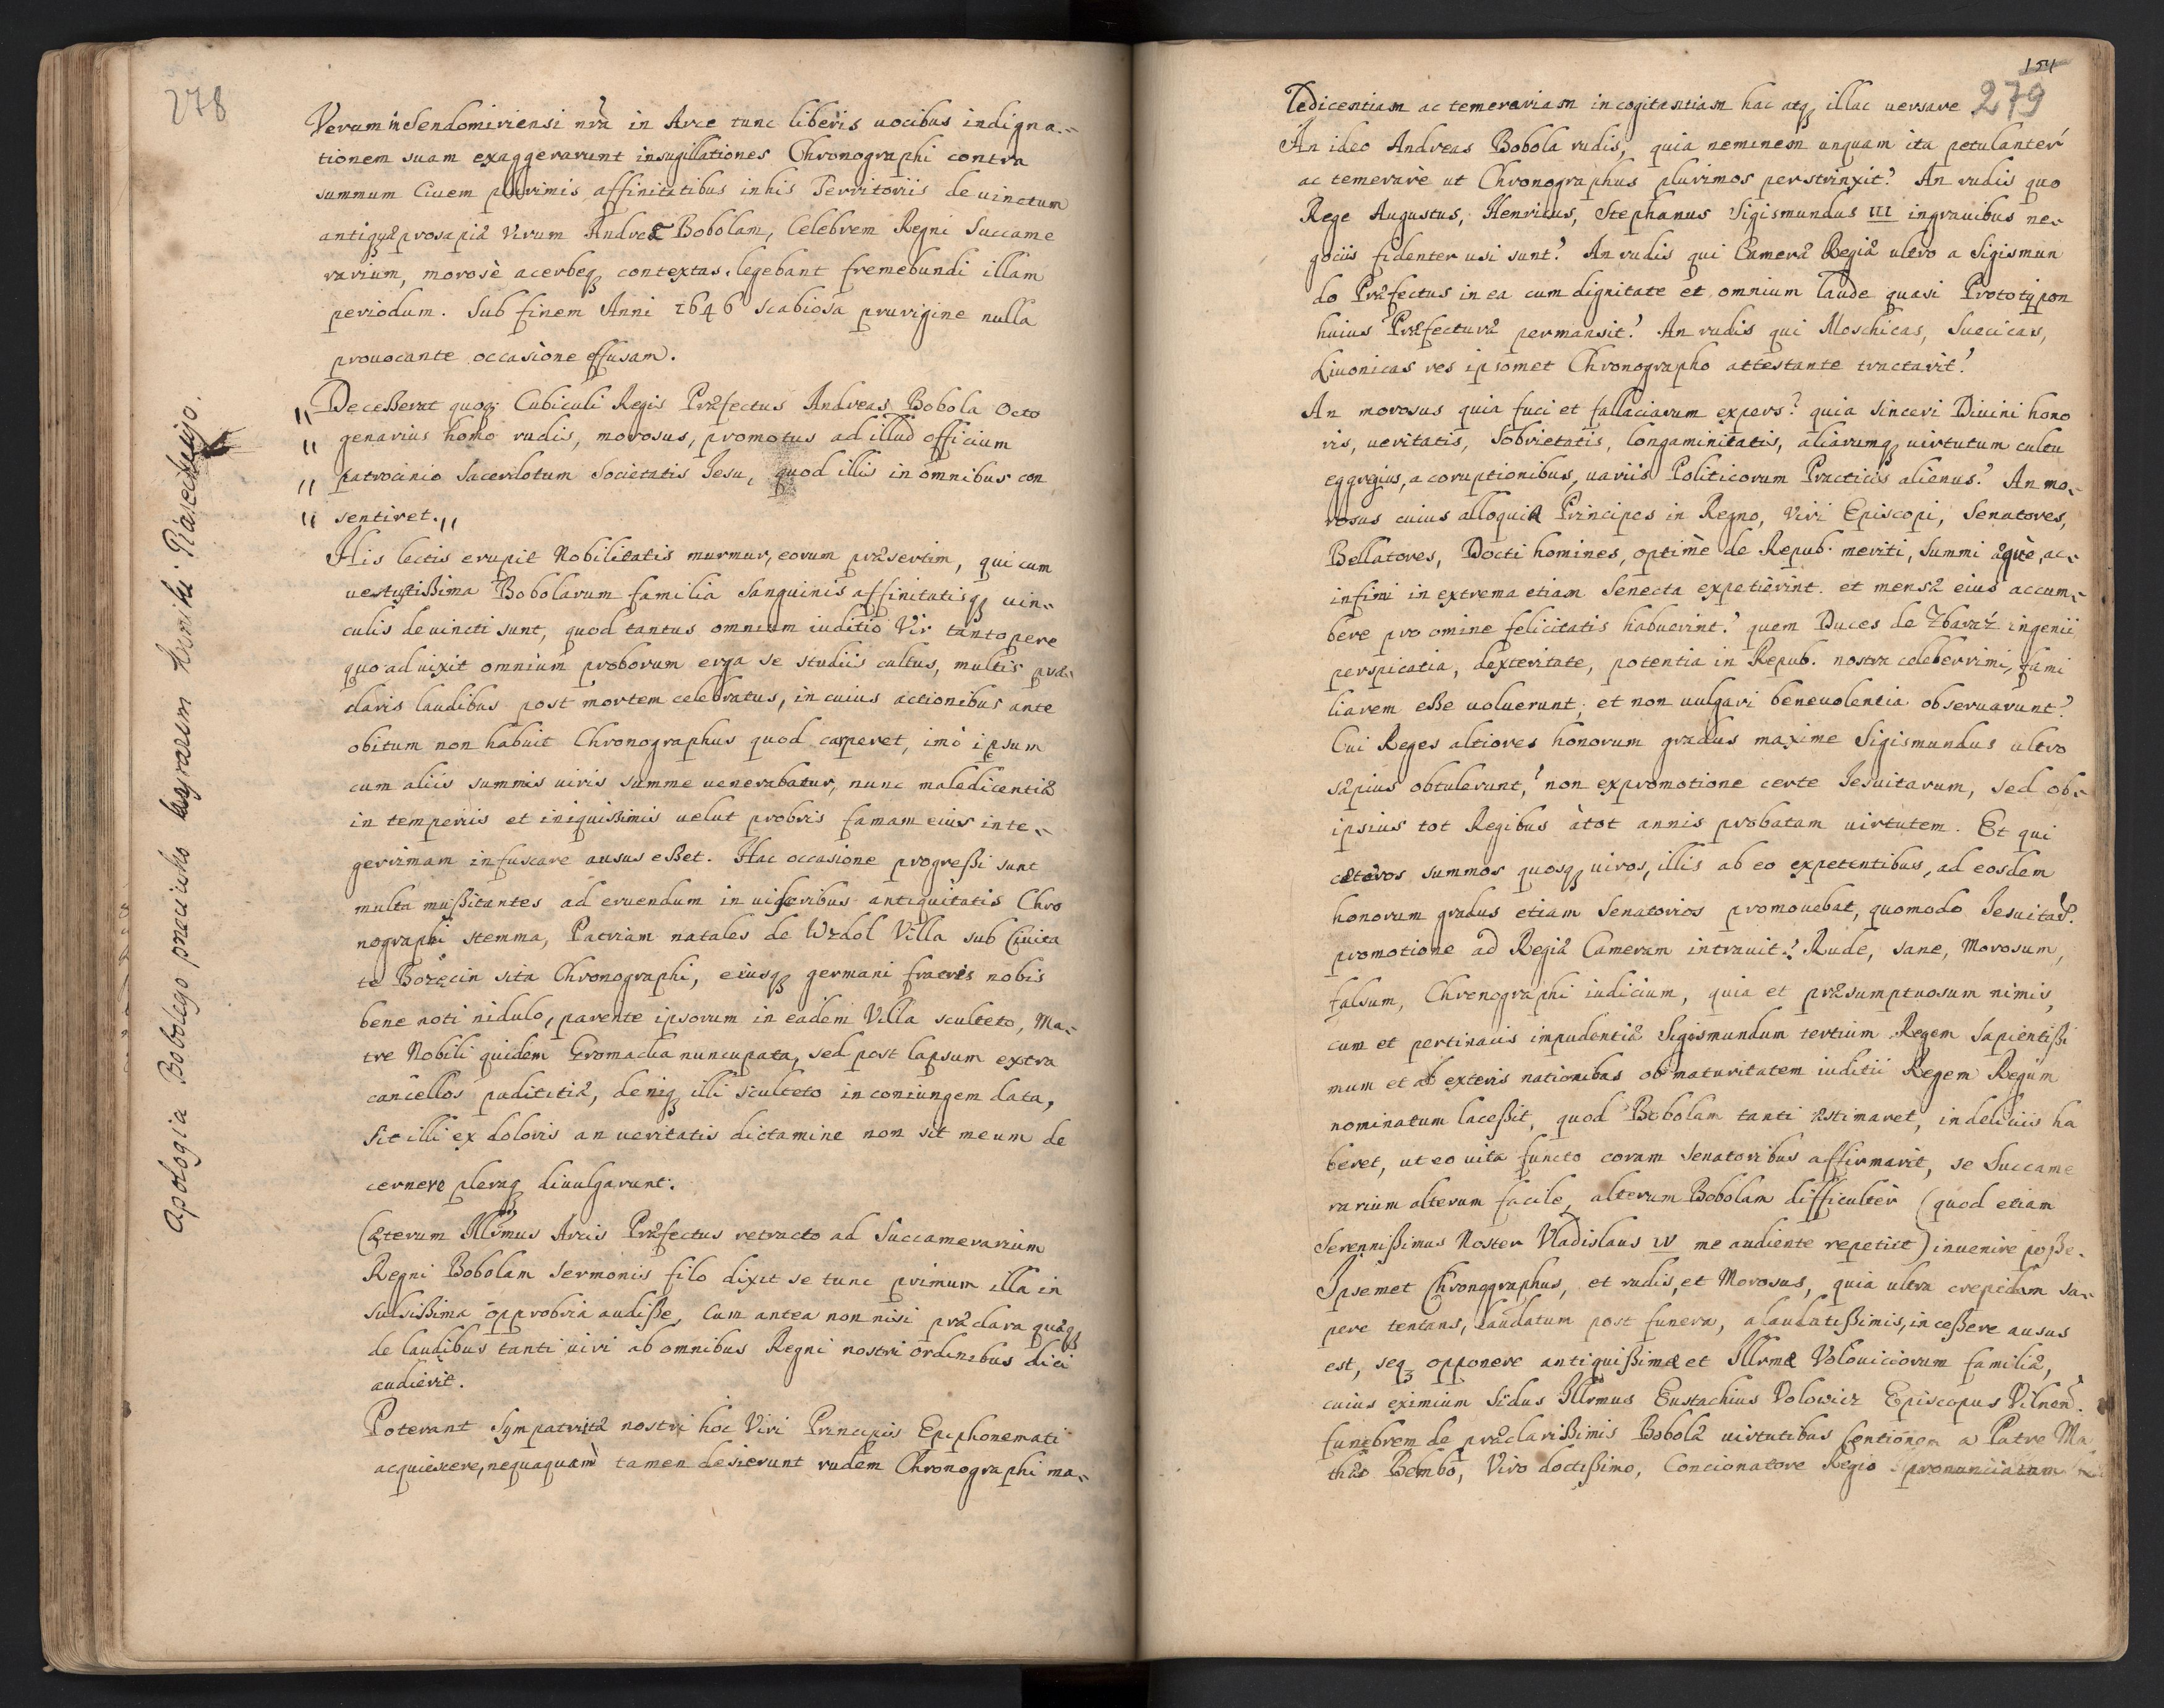 278
Verum in Sendomiriensi nrã in Arce tunc liberis uocibus indigna-
tionem suam exaggerarunt insugillationes Chronographi contra
summum Ciuem plurimis affinitatibus in his Territoriis deuinctum
antiquæ prosapiæ Virum Andreã Bobolam, Celebrem Regni Succame
rarium, morosè acerbeq; contextas. legebant fremebundi illam
periodum. Sub finem Anni 1646 scabiosa prurigine nulla
prouocante occasione effusam.
" Decesserat quoq; Cubiculi Regis Præfectus Andreas Bobola Octo
" genarius homo rudis, morosus, promotus ad illud officium
" patrocinio Sacerdotum Societatis Jesu, quod illis in omnibus con
" sentiret. "
His lectis erupit Nobilitatis murmur, eorum præsertim, qui cum
uestutissima Bobolarum familia Sanguinis affinitatisq; uin-
culis deuincti sunt, quod tantus omnium iuditio Vir tantopere
quoad uixit omnium proborum erga se studiis cultus, multis præ-
claris laudibus post mortem celebratus, in cuius actionibus ante
obitum non habuit Chronographus quod carperet, imò ipsum
cum aliis summis uiris summe uenerabatur, nunc maledicentiæ
intemperiis et iniquissimis uelut probris famam eius inte-
gerrimam infuscare ausus esset. Hac occasione progressi sunt
multa mussitantes ad eruendum in uisceribus antiquitatis Chro
nographi stemma, Patriam natales de Wzdol Villa sub Ciuita
te Bozęcin sita Chronographi, eiusq; germani fratris nobis
bene noti nidulo, parente ipsorum in eadem Villa sculteto, Ma-
tre Nobili quidem Gromadia nuncupata, sed post lapsum extra
cancellos puditiæ, deniq; illi sculteto in coniungem data,
Sit illi ex doloris an ueritatis dictamine non sit meum de
cernere pleraq; diuulgarunt.
Cæterum Illrmus Arcis Præfectus retracto ad Succamerarium
Regni Bobolam sermonis filo dixit se tunc primum illa in
sulsissima opprobria audisse, Cum antea non nisi præclara quæq;
de laudibus tanti uiri ab omnibus Regni nostri ordinibus dici
audierit.
Poterant Sympatristæ nostri hoc Viri Principis Epiphonemati
acquiescere, nequaquam tamen desierunt rudem Chronographi ma-
Apologia Bobolego przeciwko Kroniki Piaseckiego.
154
279
ledicentiam ac temerariam incogitantiam hac atq; illac uersare
An ideo Andreas Bobola rudis, quia neminem unquam ita petulanter
ac temerarè ut Chronographus plurimos perstrinxit? An rudis quo
Rege Augustus, Henricus, Stephanus Sigismundus III in grauibus ne-
gociis fidenter usi sunt? An rudis qui Cameræ Regiæ ultro a Sigismun
do Præfectus in ea cum dignitate et omnium laude quasi Prototypon
huius Præfecturæ permansit? An rudis qui Moschicas, Suecicas,
Liuonicas res ipsomet Chronographo attestante tractarit?
An morosus quia fuci et fallaciarum expers? quia sinceri Diuini hono
ris, ueritatis, Sobrietatis, longaminitatis, aliarumq; uirtutum cultu
eggregius, a coruptionibus, uariis Politicorum Practicis alienus? An mo-
rosus cuius alloquia Principes in Regno, Viri Episcopi, Senatores,
Bellatores, Docti homines, optimè de Repub. meriti, Summi æquè, ac-
infimi in extrema etiam Senecta expetierint. et mensæ eius accum-
bere pro omine felicitatis habuerint? quem Duces de Zbaraż ingenii
perspicatia, dexteritate, potentia in Repub. nostra celeberrimi, fami
liarem esse uoluerunt, et non uulgari beneuolentia obseruarunt?
Cui Reges altiores honorum gradus maxime Sigismundus ultro
sæpius obtulerunt, non expromotione certe Jesuitarum, sed ob-
ipsius tot Regibus àtot annis probatam uirtutem. Et qui
cæteros summos quosq; uiros, illis ab eo expetentibus, ad eosdem
honorum gradus etiam Senatorios promouebat, quomodo Jesuitar̃.
promotione ad Regiã Cameram intrauit? Rude, sane, Morosum,
falsum, Chronographi iudicium, quia et præsumptuosum nimis,
cum et pertinacis impudentiæ Sigismundum tertium Regem Sapientissi
mum et ab exteris nationibus ob maturitatem iuditii Regem Regum
nominatum lacessit, quod Bobolam tanti æstimaret, in deliciis ha
beret, ut eo uita functo coram Senatoribus affirmarit, se Succame
rarium alterum facile, alterum Bobolam difficulter (quod etiam
Serenissimus Noster Vladislaus IV me audiente repetiit) inuenire posse.
Ipsemet Chronographus, et rudis, et Morosus, quia ultra crepidam sa-
pere tentans, laudatum post funera, a laudatissimis, incessere ausus
est, seq; opponere antiquissimæ et Illrmæ Volouiciorum familiæ,
cuius eximium Sidus Illrmus Eustachius Volowicz Episcopus Vilnen̄.
funebrem de præclarissimis Bobolæ uirtutibus Contionem a Patre Ma
thæo Bembo, Viro doctissimo, Concionatore Regio pronunciatam